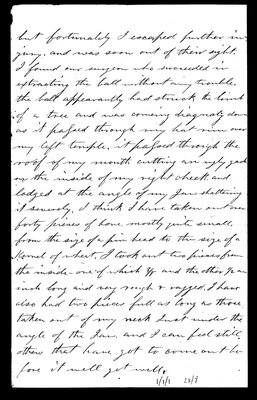 but fortunately I escaped further in-
jury, and was soon out of their sight.
I found our surgeon who succeeded in
extracting the ball without any trouble.
the ball appearantly had struck the limb
of a tree and was comeing diagnaly down
as it passed through my hat rim over
my left temple. it passed through the
roof of my mouth cutting an ugly gash
on the inside of my right cheek and
lodged at the angle of my Jaw shattering
it severely, I think I have taken out over
forty pieces of bone, mostly quite small,
from the size of a pin head to the size of a
Kernel of wheat, I took out two pieces from
the inside one of which 3/4 and the other 1/2 an
inch long and very rough & ragged. I have
also had two pieces full as long as those
taken out of my neck Just under the
angle of the Jaw, and I can feel still
others that have got to come out be-
fore it will get well.